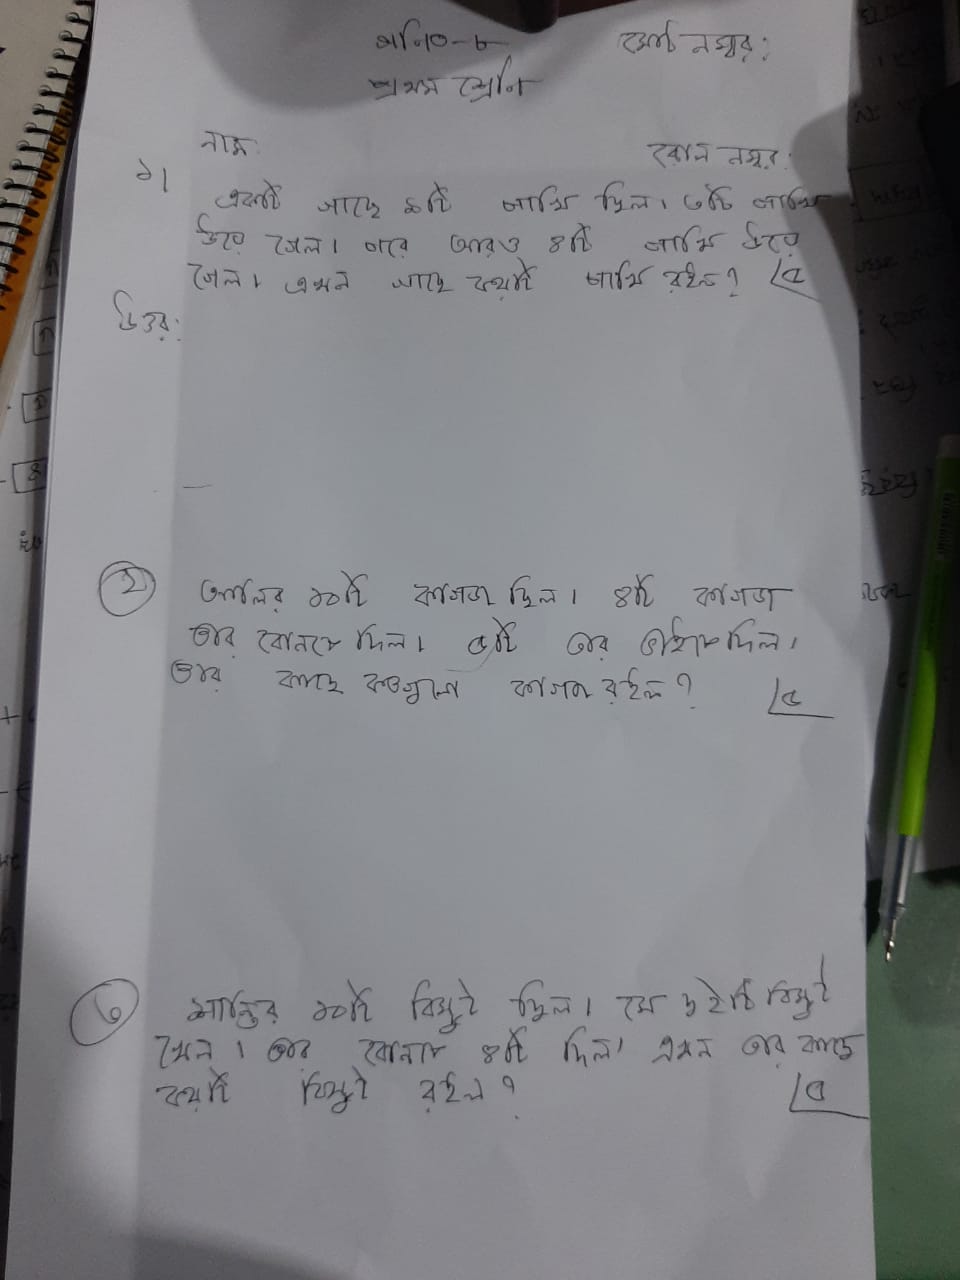 গনিত-৮ মোট নম্বর:
প্রথম শ্রেনি
নাম: রোল নম্বর:
১। একটি গাছে ৯টি পাখি ছিল। ৩টি পাখি
উড়ে গেল। পরে আরও ৪টি পাখি উড়ে
গেল। এখন গাছে কয়টি পাখি রইল? ৫
উত্তর:
২ অলির ১০টি কাগজ ছিল। ৪টি কাগজ
তার বোনকে দিল। ৫টি তার ভাইকে দিল।
তার কাছে কতগুলো কাগজ রইল? ৫
৩ শান্তুর ১০টি বিস্কুট ছিল। সে দুইটি বিস্কুট
খেল। তার বোনকে ৪টি দিল। এখন তার কাছে
কয়টি বিস্কুট রইল? ৫